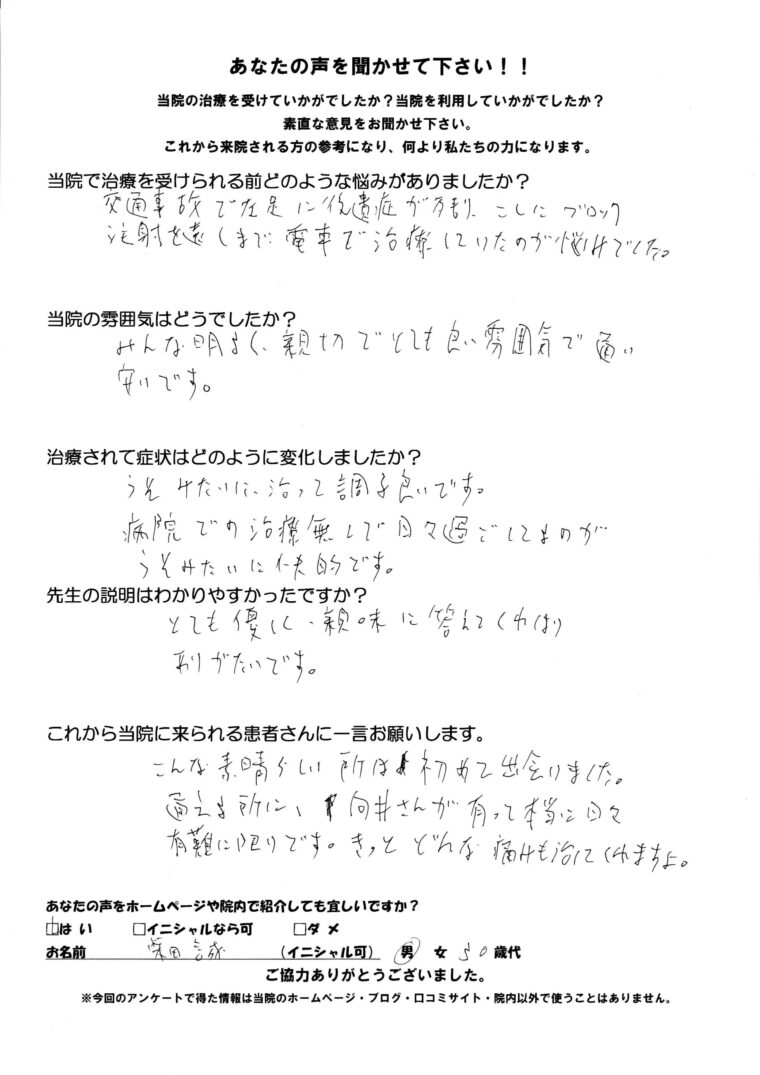 あなたの声を聞かせて下さい！！
当院の治療を受けていかがでしたか？当院を利用していかがでしたか？
素直な意見をお聞かせ下さい。
これから来院される方の参考になり、何より私たちの力になります。
当院で治療を受けられる前どのような悩みがありましたか？
交通事故で左足に後遺症が有り、こしにブロック
注射を遠くまで電車で治療していたのが悩みでした。
当院の雰囲気はどうでしたか？
みんな明るく、親切でとても良い雰囲気で通い
安いです。
治療されて症状はどのように変化しましたか？
うそみたいに、治って調子良いです。
病院での治療無しで日々過ごしてるのが
うそみたいに 的です。
先生の説明はわかりやすかったですか？
とても優しく、親味に答えてくれはり
ありがたいです。
これから当院に来られる患者さんに一言お願いします。
こんな素晴らしい所は初めて出会いました。
通える所に、向井さんが有って本当に日々
有難に限りです。きっとどんな痛みも治してくれますよ。
あなたの声をホームページや院内で紹介しても宜しいですか？
□はい □イニシャルなら可 □ダメ
お名前 （イニシャル可） 男 女 50歳代
ご協力ありがとうございました。
※今回のアンケートで得た情報は当院のホームページ・ブログ・口コミサイト・院内以外で使うことはありません。